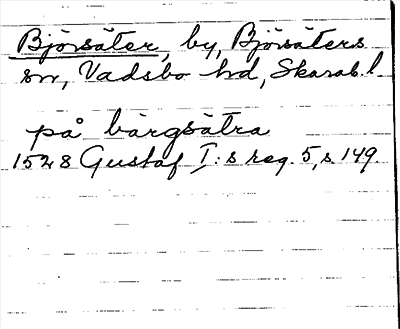 Björsäter, by, Björsäters
sn, Vadsbo hd, Skarab. l.
på bärgsätra
1528 Gustaf I:s reg. 5, s 149.